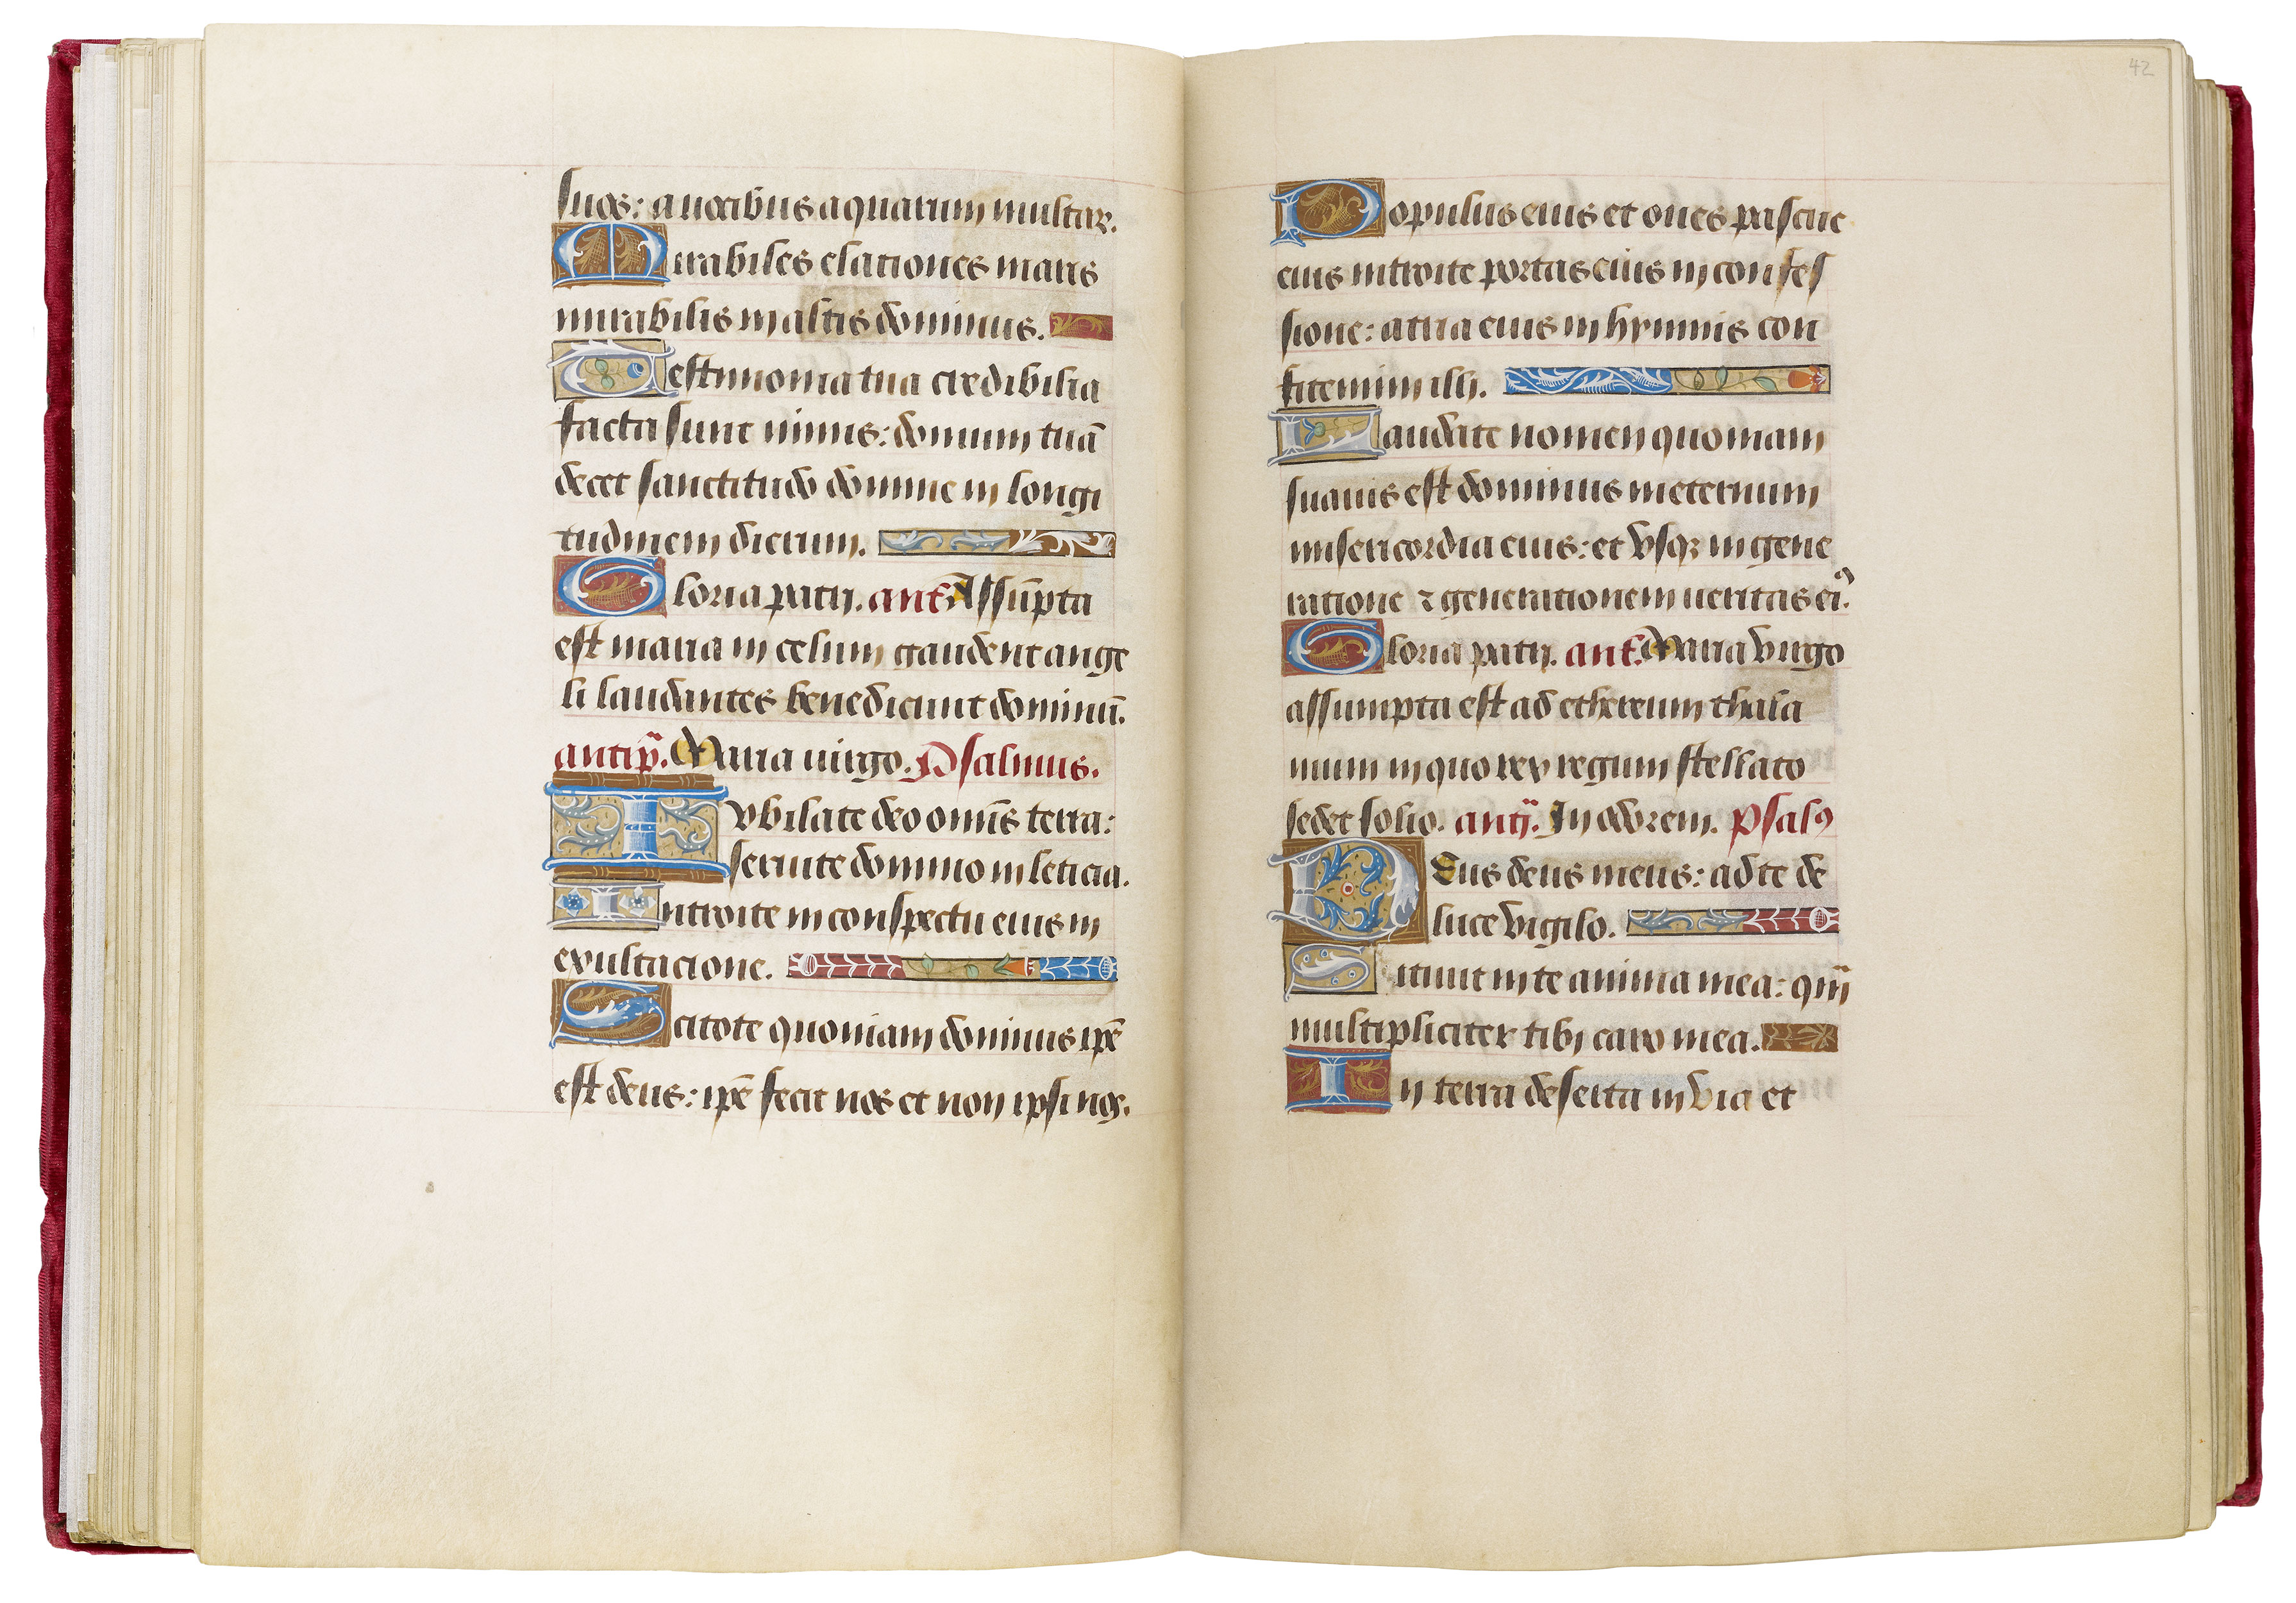 suos: a vocibus aquarum multarꝝ.
Mirabiles elationes maris
mirabilis in altis dominus.
Testimonia tua credibilia
facta sunt nimis: domum tuā
decet sanctitudo domine in longi
tudinem dierum.
Gloria patri. ant. Assūpta
est maria in celum gaudent ange
li laudantes benedicunt dominū.
antiph̄. Maria uirgo. Psalmus.
Iubilate deo omīs terra:
seruite domino in leticia.
Introite in conspectu eius in
exultacione.
Scitote quoniam dominus ip̄e
est deus: ip̄e fecit nos et non ipsi nos.
42
Populus eius et oues pascue
eius introite portas eius in confes
sione: atria eius in hymnis con
fitemini illi.
Laudate nomen quoniam
suauis est dominus in eternum
misericordia eius: et vsqꝫ in gene
ratione ⁊ generationem ueritas ei⁹.
Gloria patri. ant. Maria virgo
assumpta est ad ethereum thala
mum in quo rex regum stellato
sedet solio. anti. In odorem. Psalꝰ
Deus deus meus: ad te de
luce vigilo.
Sitiuit in te anima mea: qm̄
multipliciter tibi caro mea.
In terra deserta inuia et